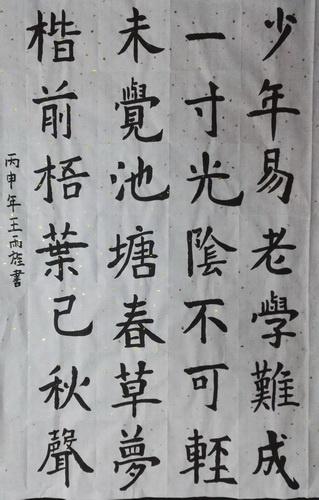 少年易老學難成
一寸光陰不可輕
未覺池塘春草夢
楷前梧葉已秋聲
丙申年王雨誰書